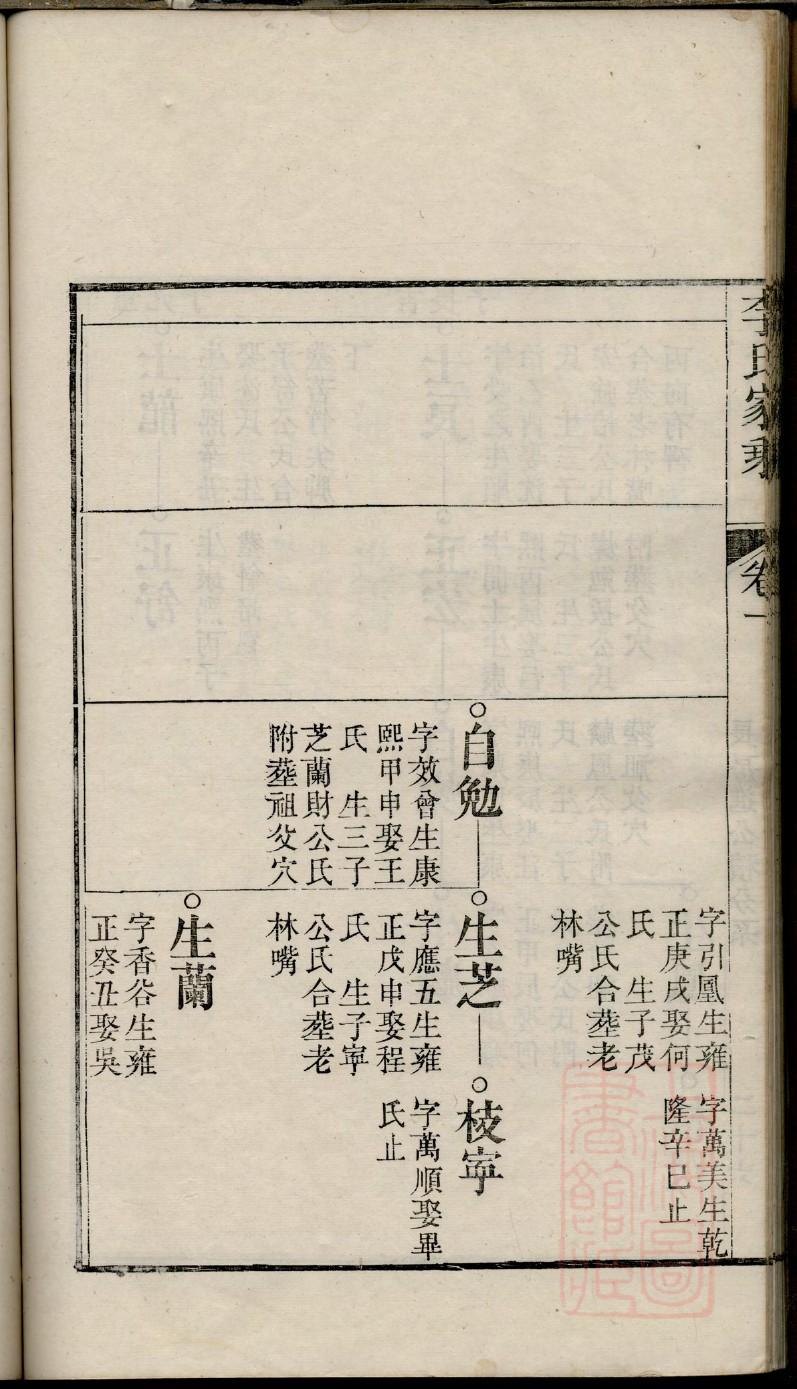 李氏家乘
卷一
字引鳳生雍
正庚戌娶何
氏　生子茂
公氏合塟老
林嘴
字萬美生乾
隆辛巳止
自勉
字效曾生康
熙甲申娶王
氏　生三子
芝蘭財公氏
附塟祖父穴
生芝
字應五生雍
正戊申娶程
氏　生子寜
公氏合塟老
林嘴
枝寜
字萬順娶畢
氏止
生蘭
字香谷生雍
正癸丑娶吳